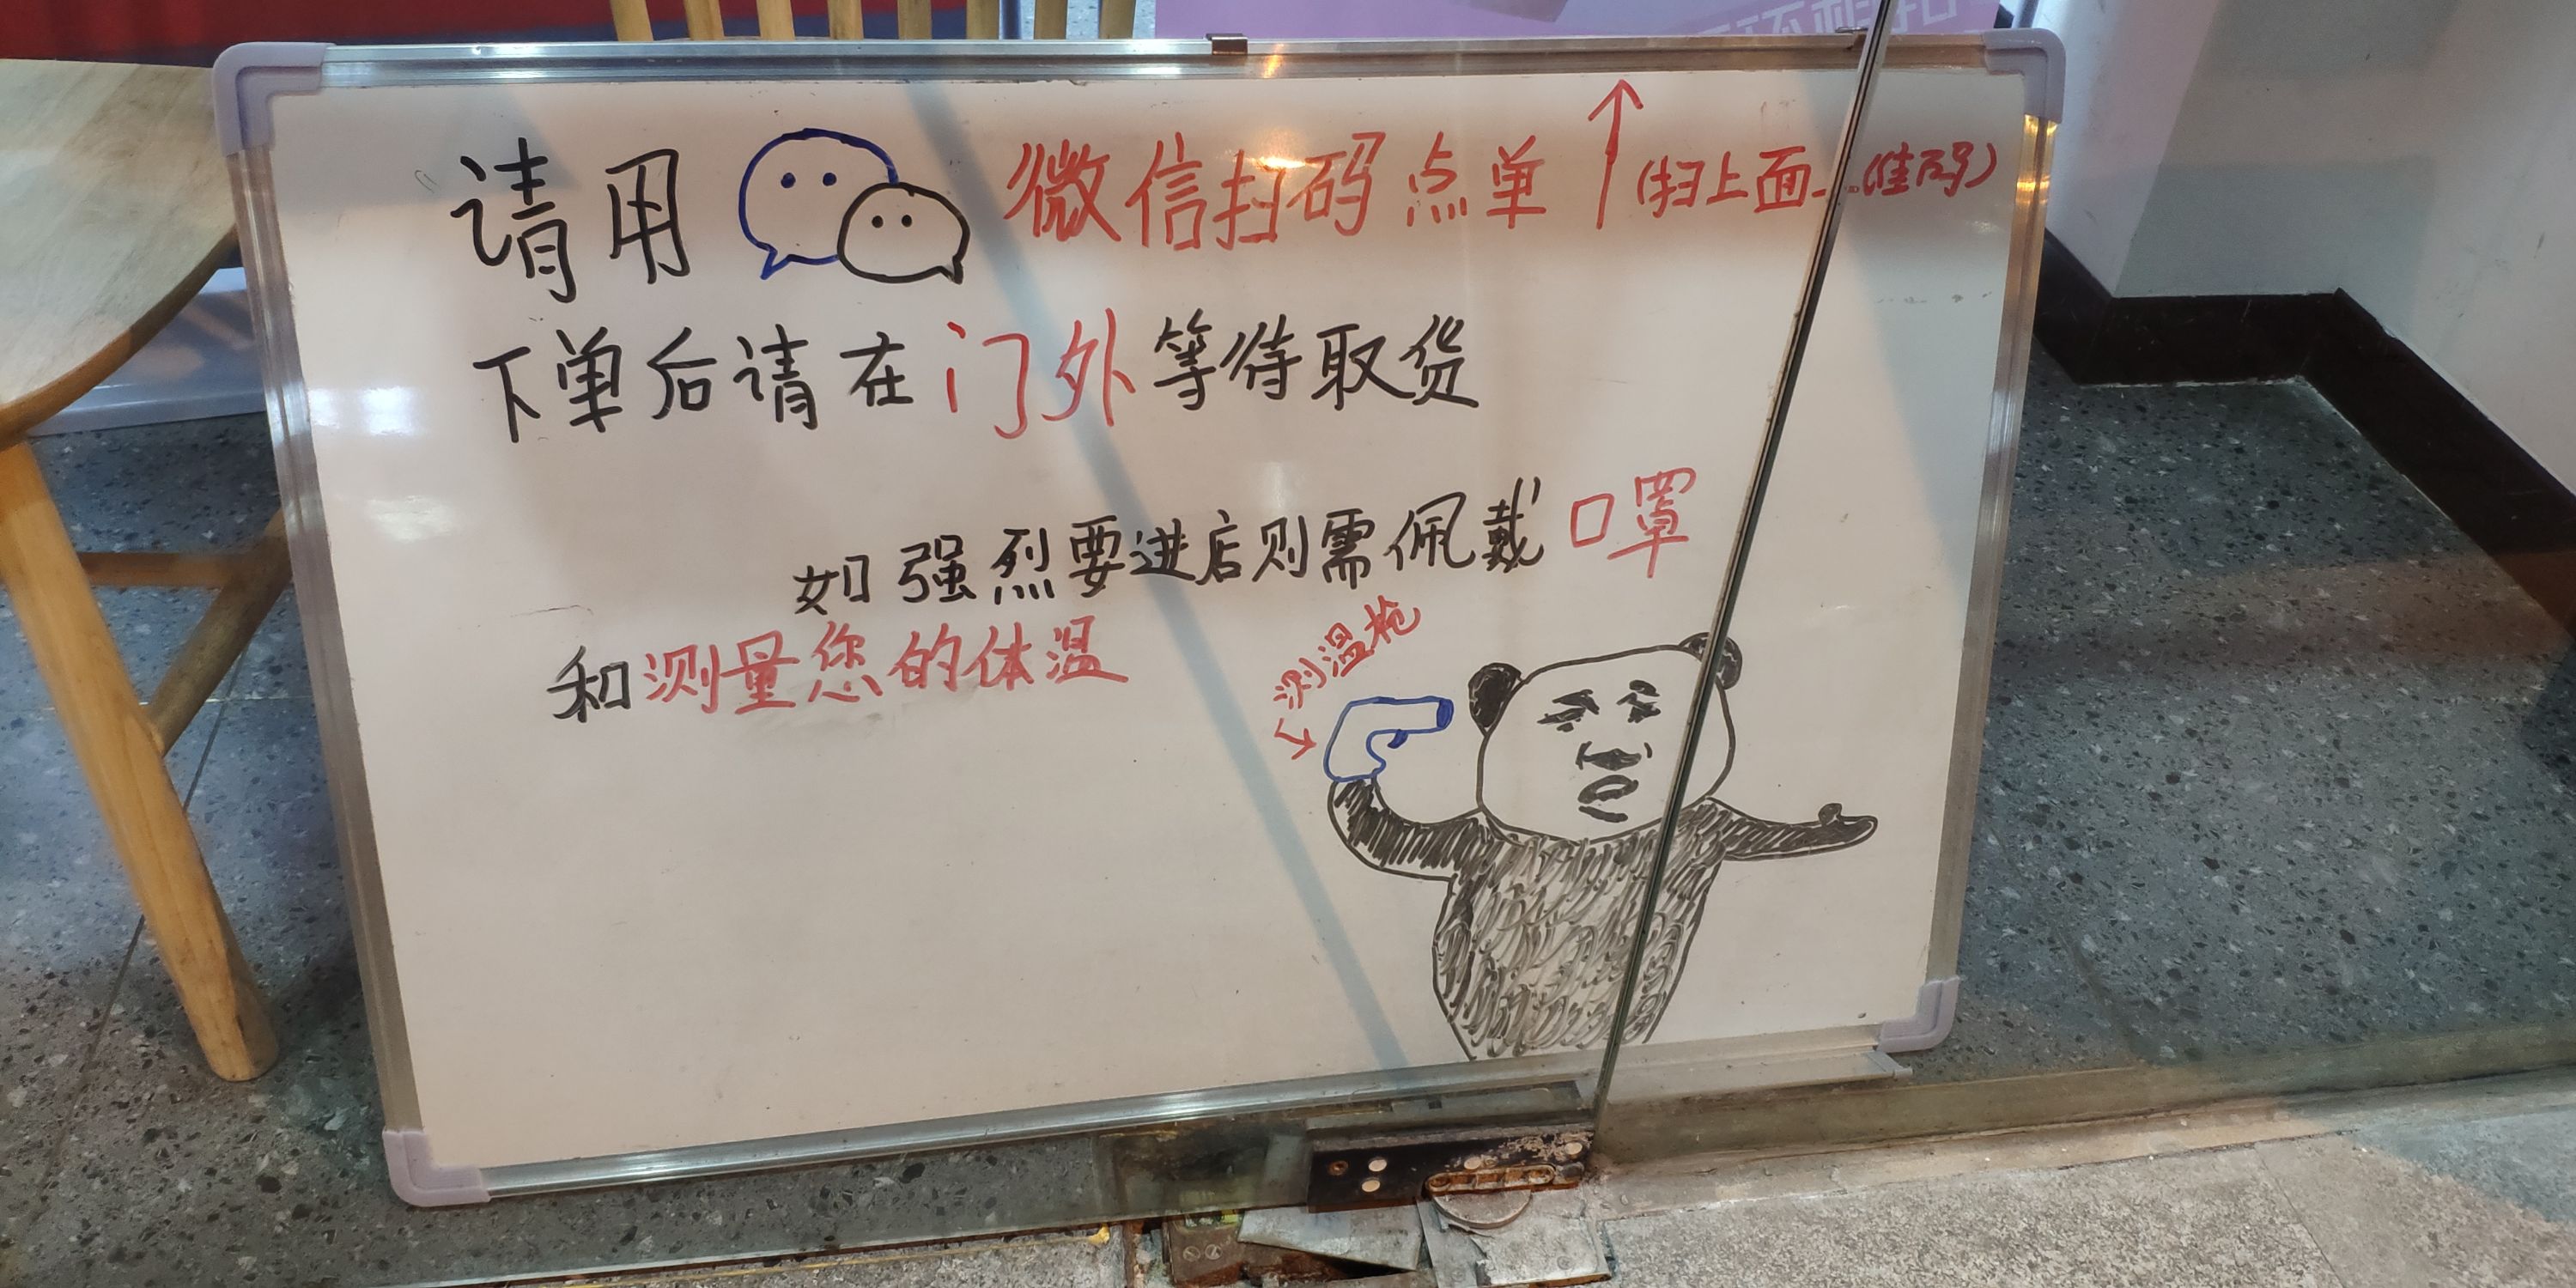 请用 微信扫码点单 ↑ (扫上面
下单后请在门外等待取货
如强烈要进店则需佩戴口罩
和测量您的体温
测温枪